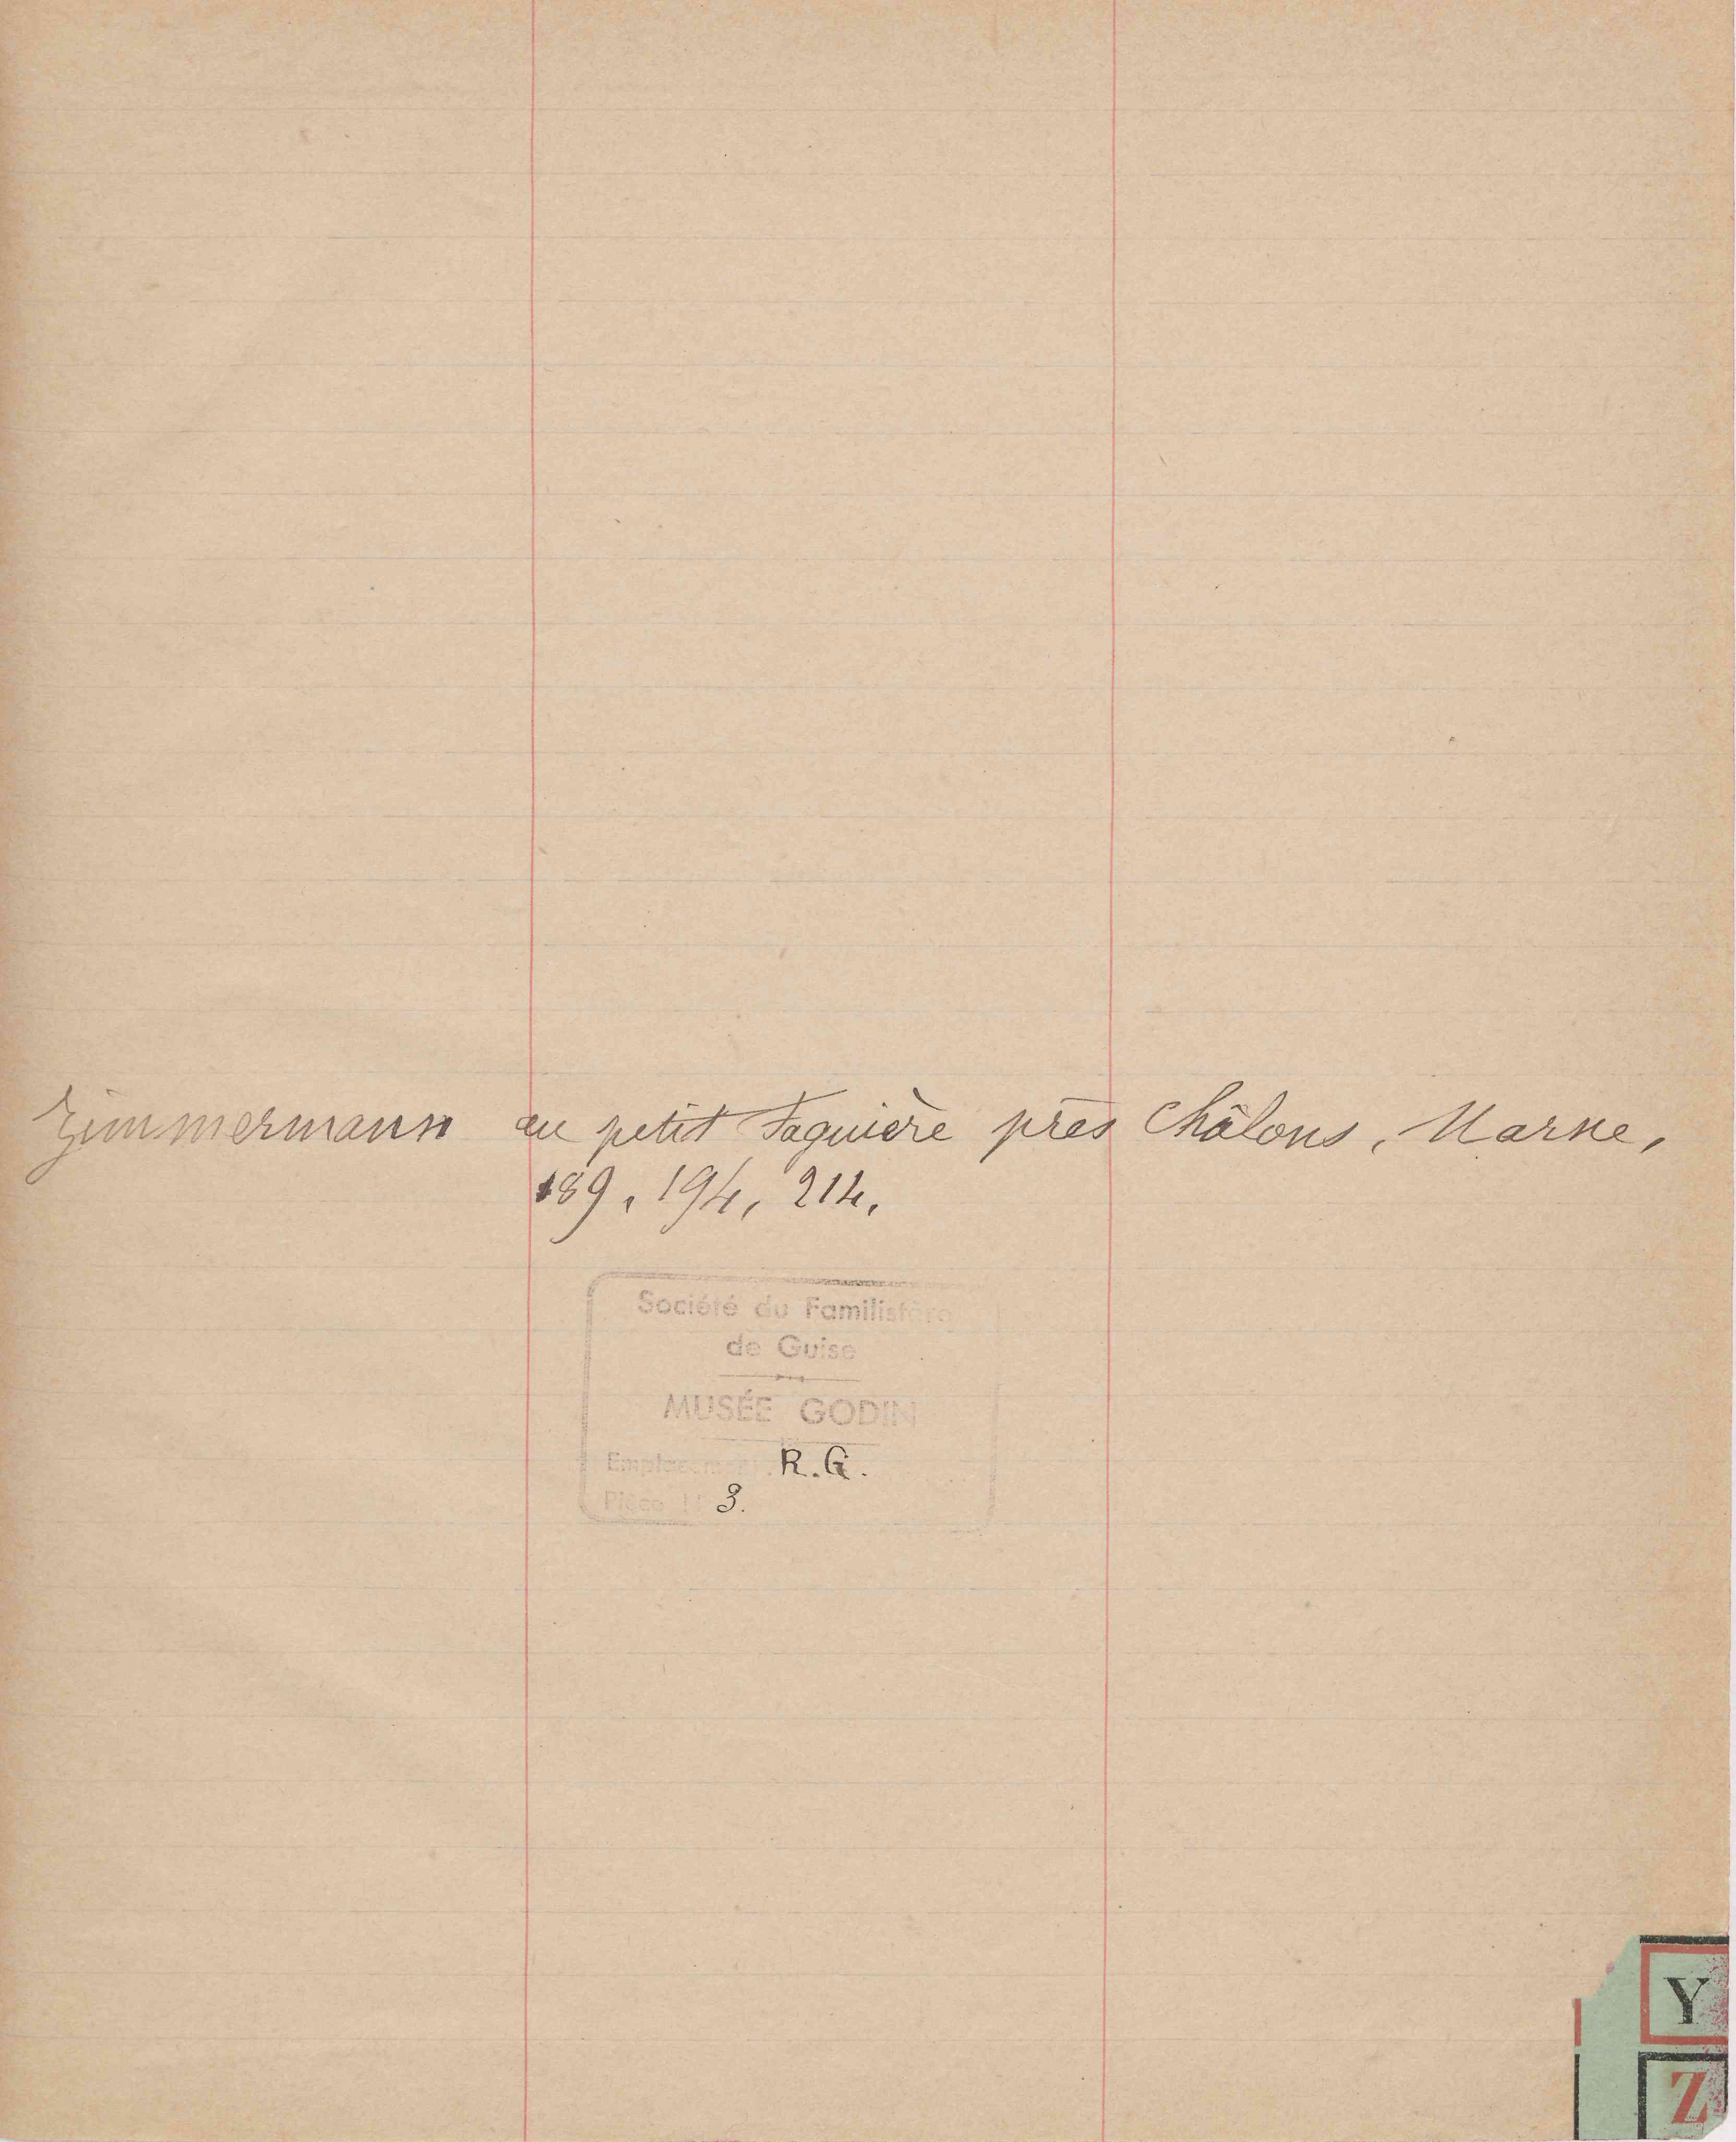 Zimmermann au petit Faguière près Châlons, Marne,
189, 194, 214.
Société du Familistère
de Guise
MUSÉE GODIN
R. G.
Pièce 3.
Y
Z